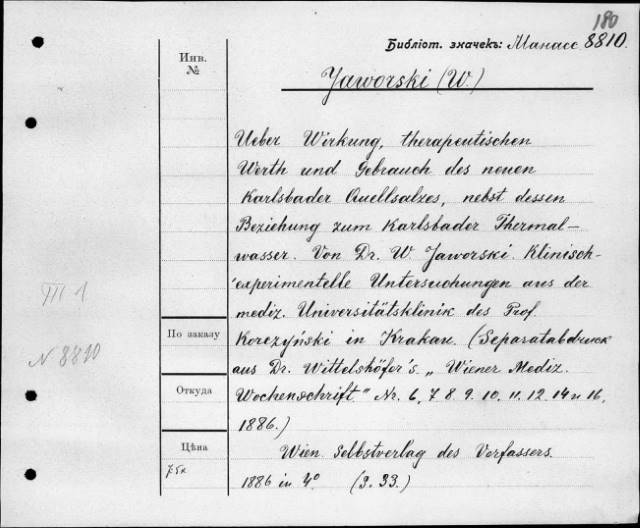 180
Библіот. значекъ: Манасс 8810.
Инв.
№
Jaworski (W.)
Ueber Wirkung, therapeutischen
Werth und Gebrauch des neuen
Karlsbader Quellsalzes, nebst dessen
Beziehung zum Karlsbader Thermal-
wasser. Von Dr. W. Jaworski. Klinisch-
experimentelle Untersuchungen aus der
mediz. Universitätsklinik des Prof.
Korczyński in Krakau. (Separatabdruck
aus Dr. Wittelshöfer's „Wiener Mediz.
Wochenschrift" Nr. 6, 7 8. 9. 10. 11. 12. 14 u 16.
1886.)
Wien. Selbstverlag des Verfassers.
1886 in 4° (S. 33.)
III 1
N 8810
По заказу
Откуда
Цѣна
75к